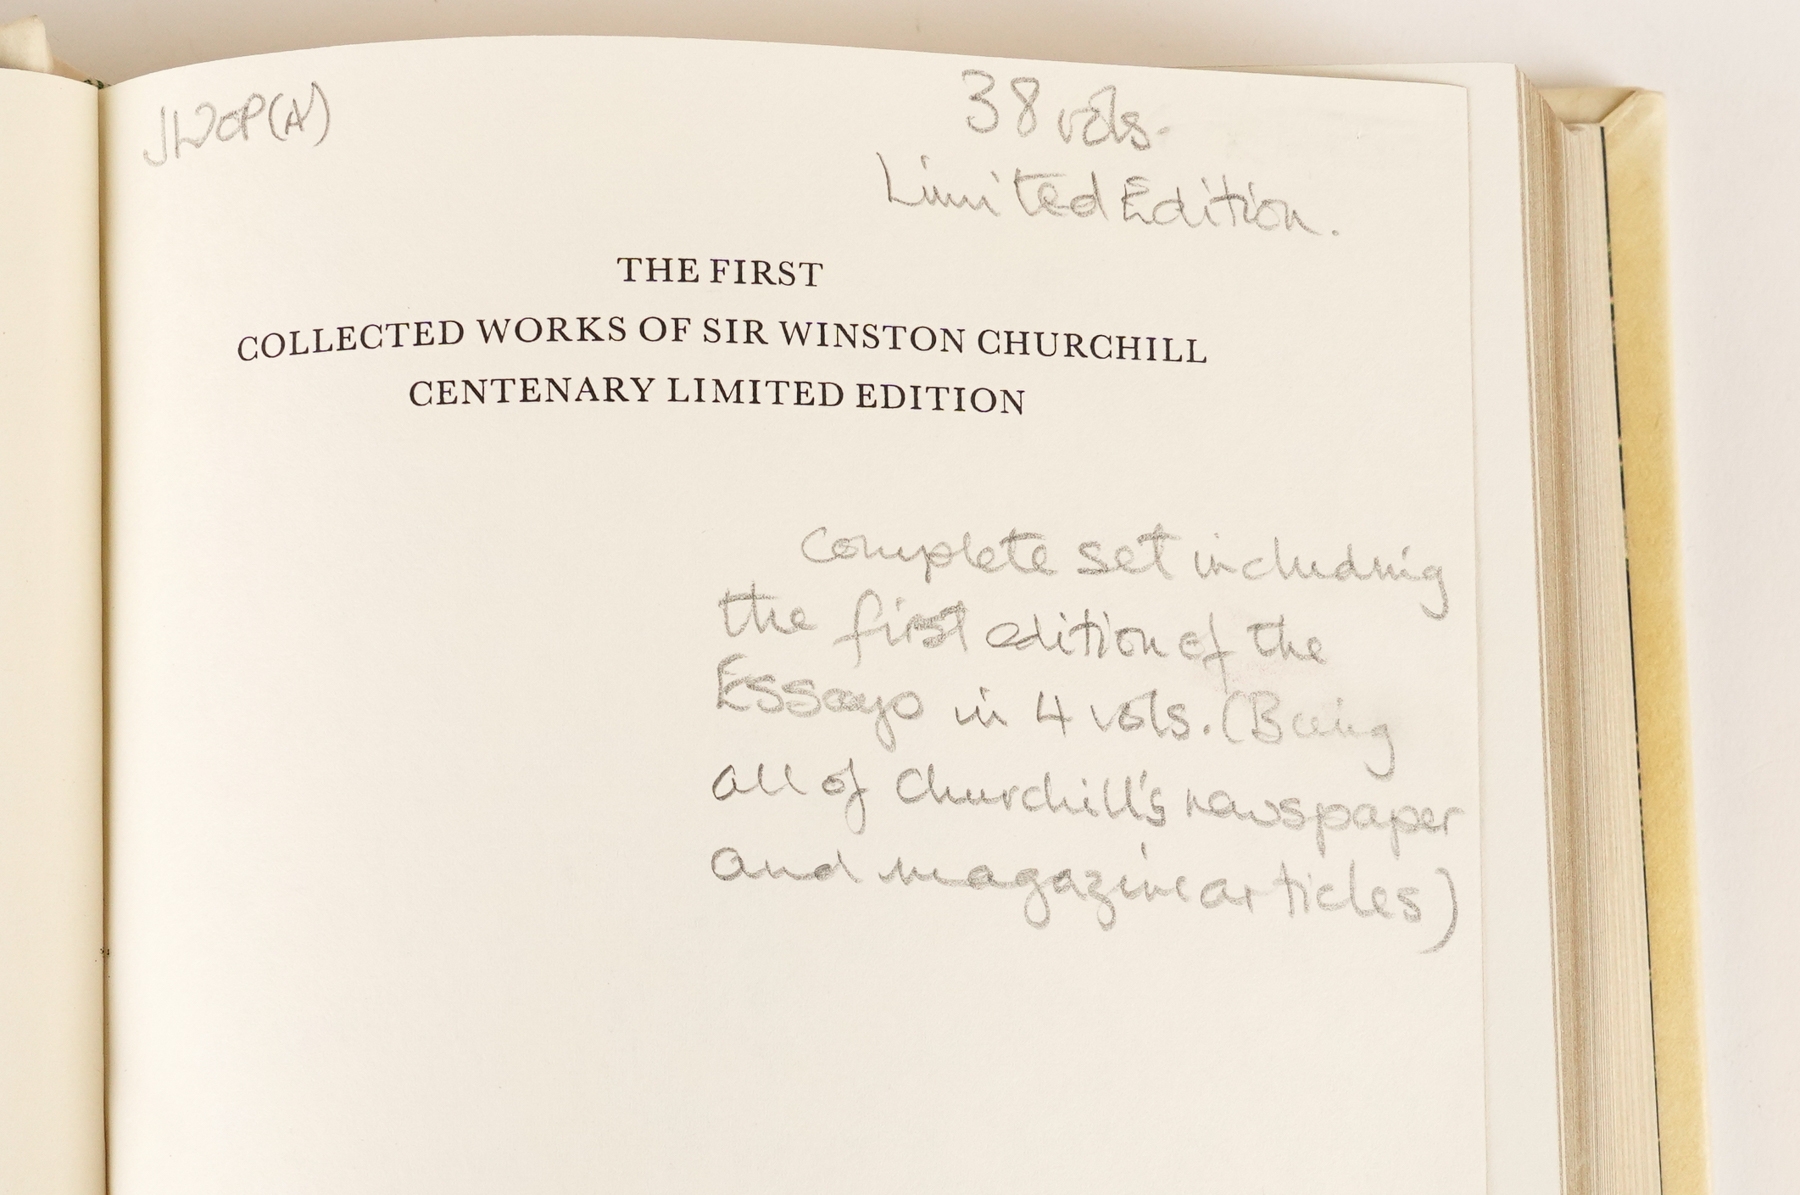 38 vols.
Limited Edition.
THE FIRST
COLLECTED WORKS OF SIR WINSTON CHURCHILL
CENTENARY LIMITED EDITION
Complete set including
the first edition of the
Essays in 4 vols. (Being
all of Churchill's newspaper
and magazine articles)